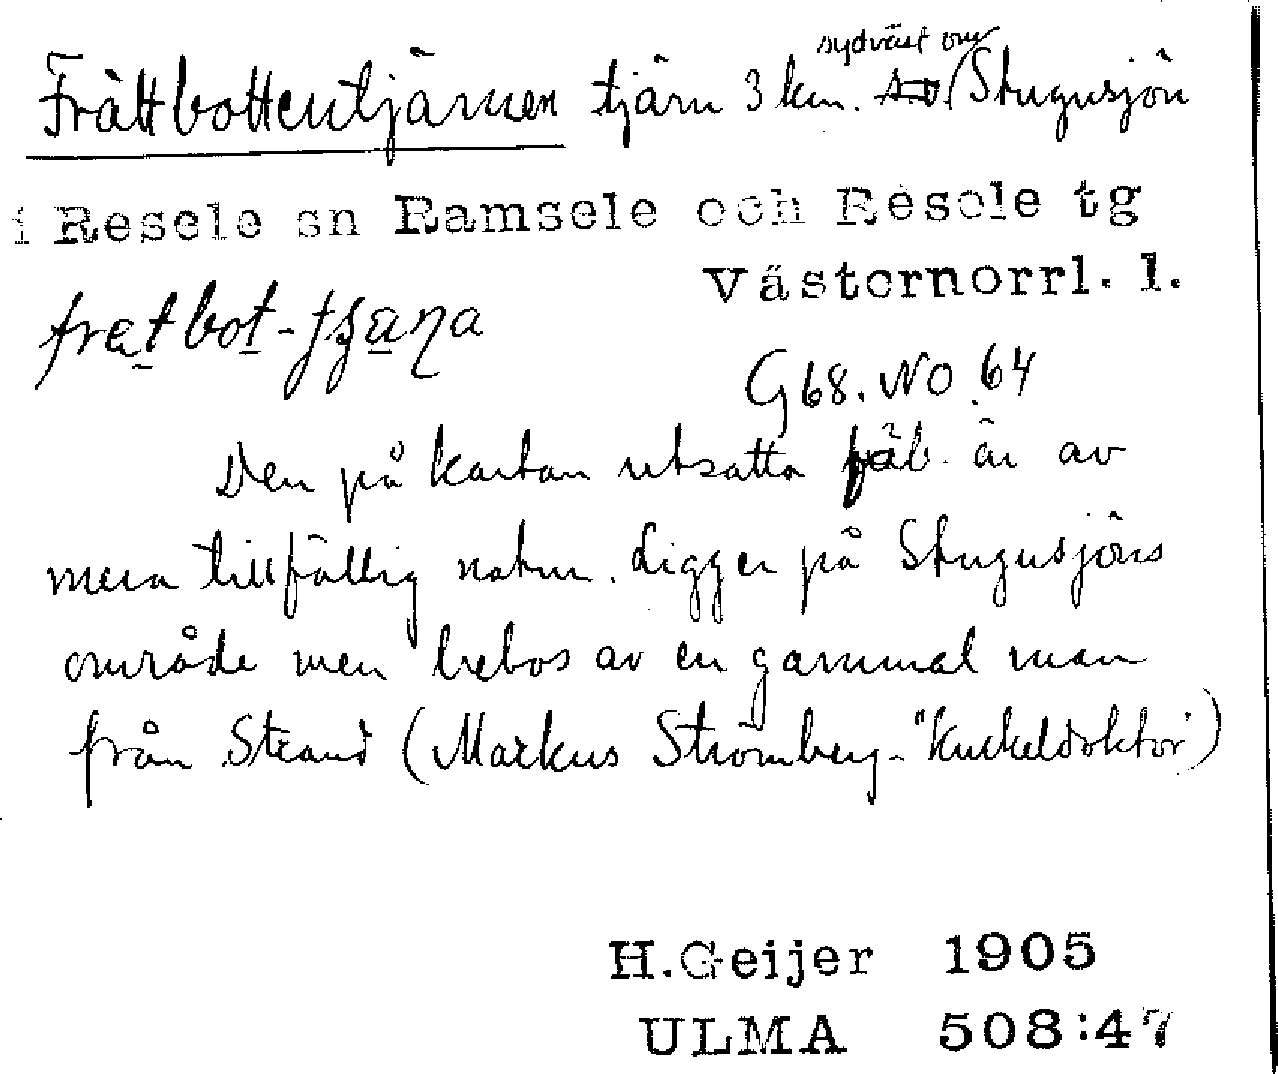 Frättbottentjärnen tjärn 3 km. sydväst om Stugusjön
i Resele sn Ramsele och Resele tg
Västernorrl. l.
G68. NO 64
Den på kartan utsatta fäb. är av
mera tillfällig natur. Ligger på Stugusjöns
område men bebos av en gammal man
från Strand (Markus Strömberg - "Kuckeldoktor")
H.Geijer 1905
ULMA 508:47